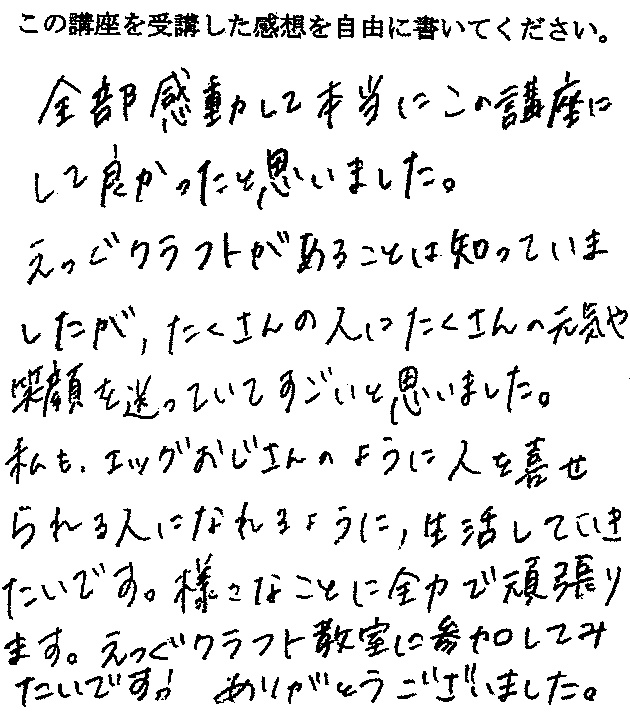 この講座を受講した感想を自由に書いてください。
全部感動して本当にこの講座に
して良かったと思いました。
えっぐクラフトがあることは知っていま
したが、たくさんの人にたくさんの元気や
笑顔を送っていてすごいと思いました。
私も、エッグおじさんのように人を喜せ
られる人になれるように、生活していき
たいです。様々なことに全力で頑張り
ます。えっぐクラフト教室に参加してみ
たいです! ありがとうございました。